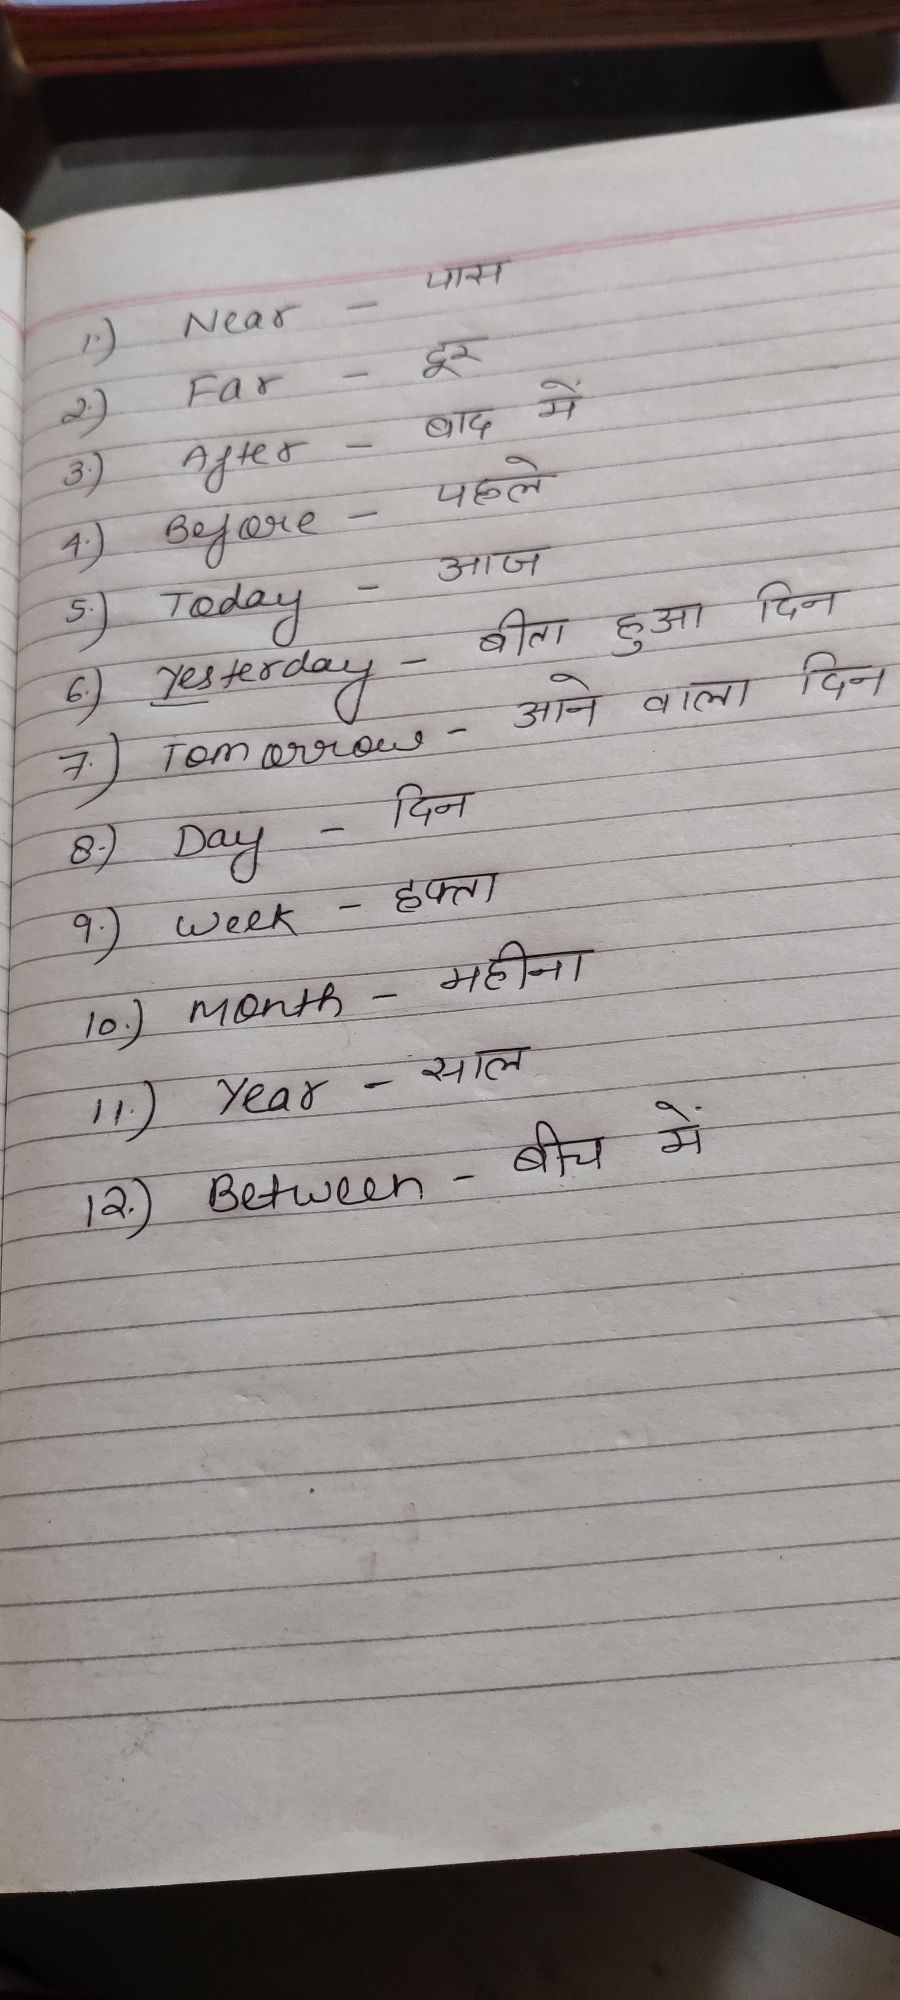 1.) Near - पास
2.) Far - दूर
3.) After - बाद में
4.) Before - पहले
5.) Today - आज
6.) Yesterday - बीता हुआ दिन
7.) Tomorrow - आने वाला दिन
8.) Day - दिन
9.) Week - हफ्ता
10.) Month - महीना
11.) Year - साल
12.) Between - बीच में